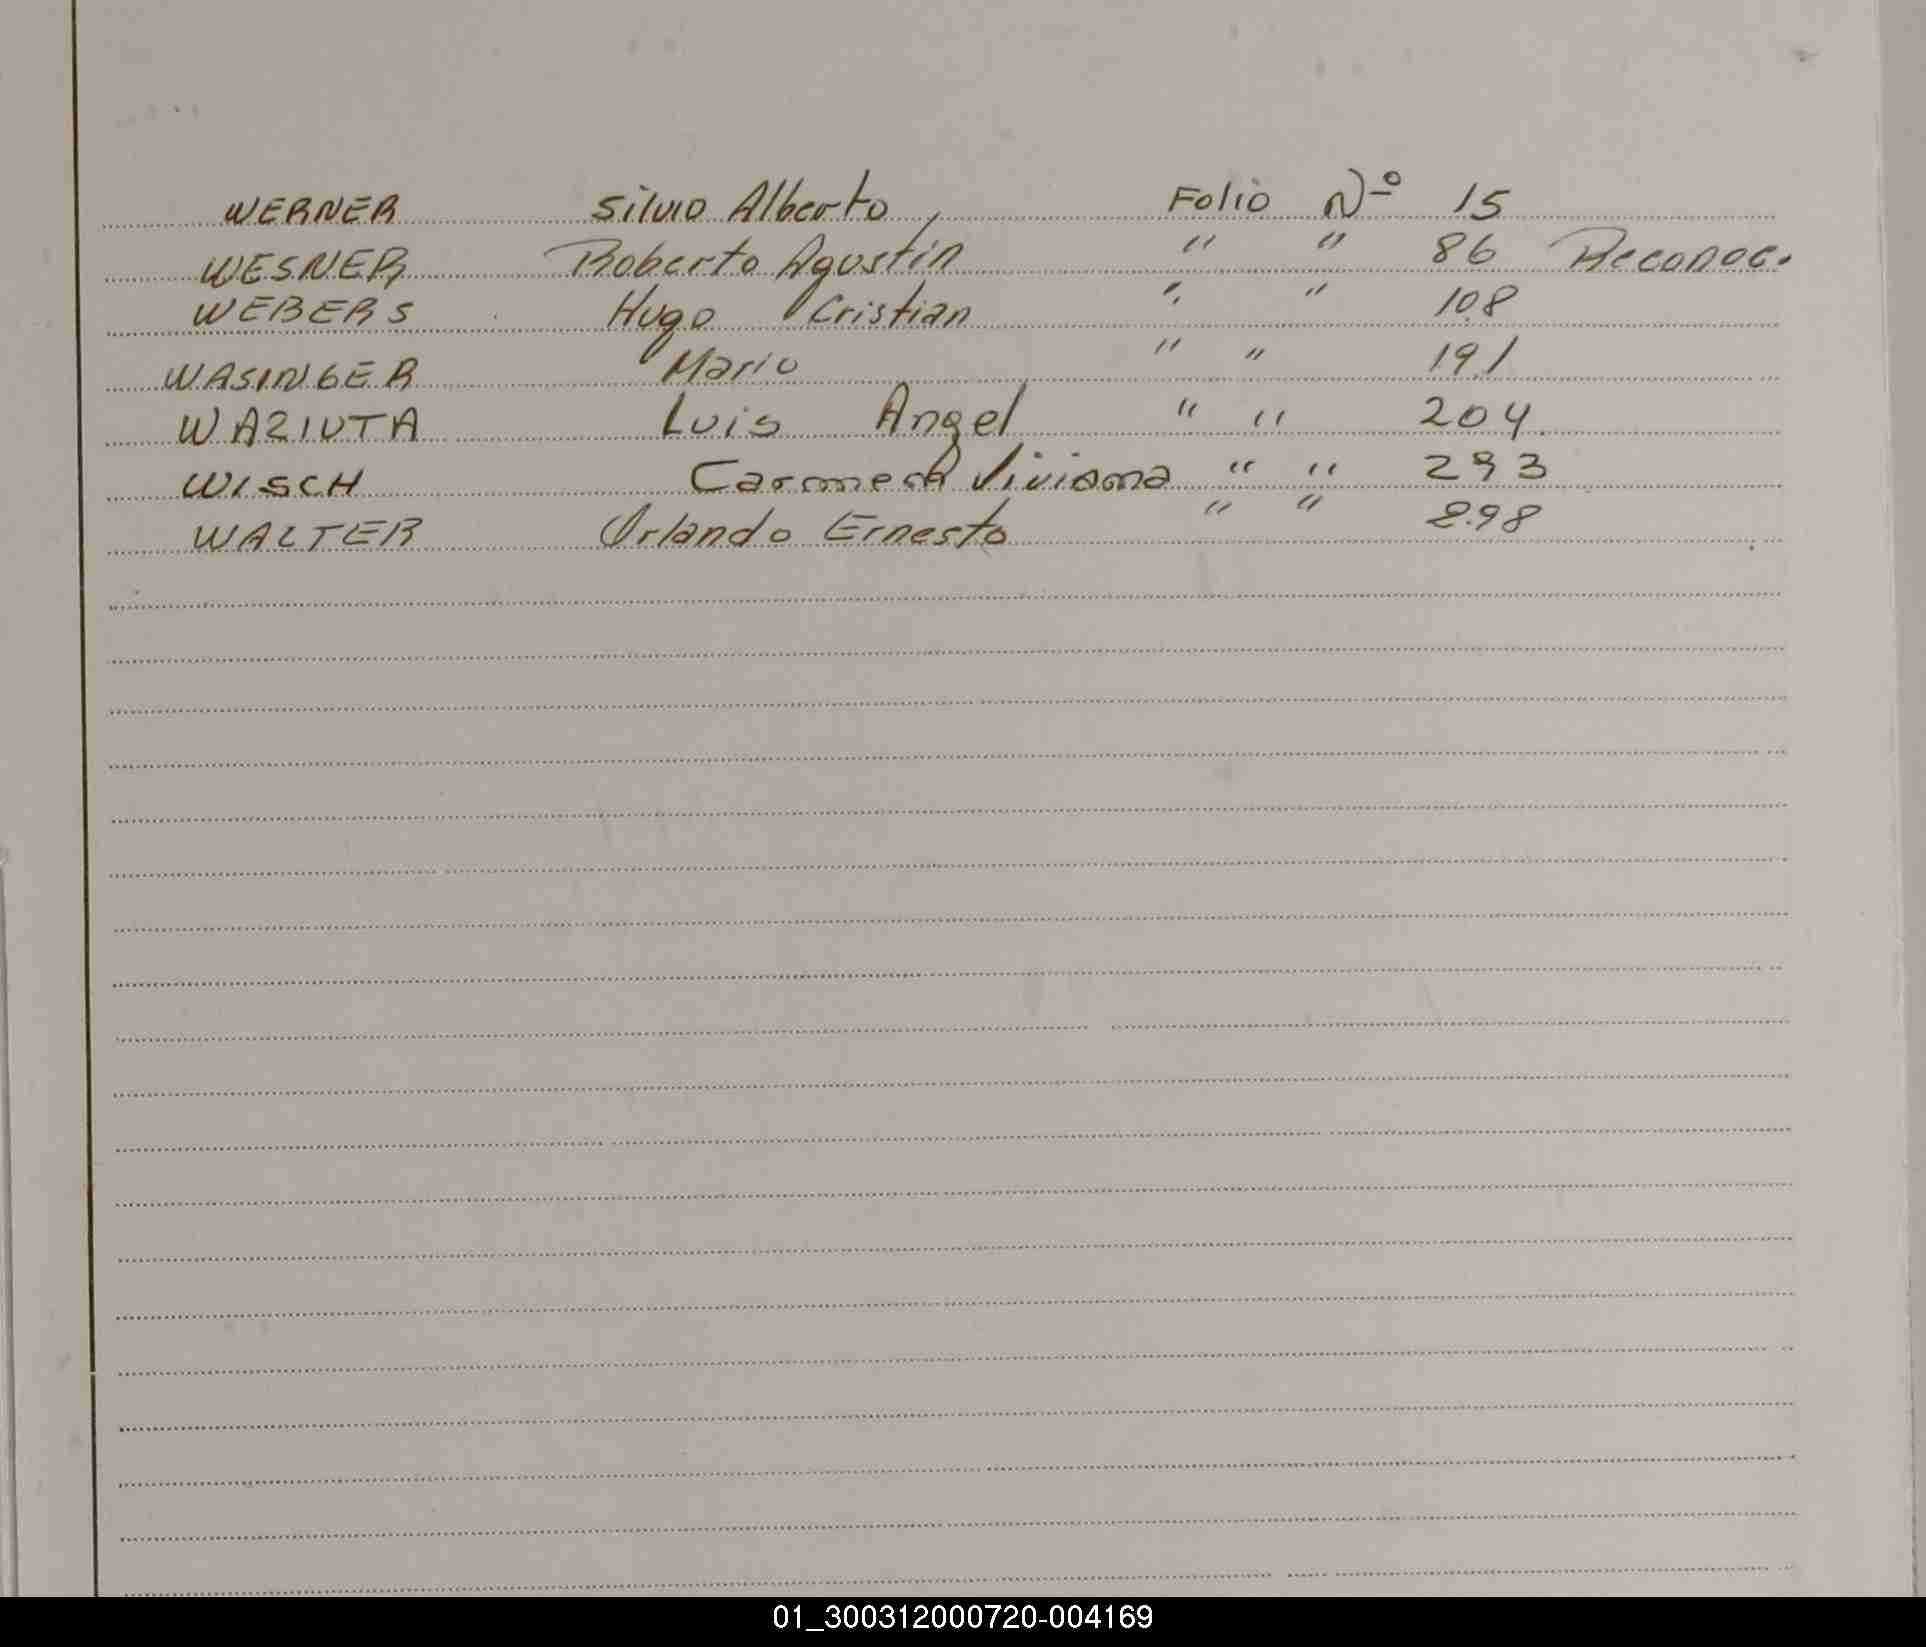 WERNER Silvio Alberto, Folio Nº 15
WESNER Roberto Agustín " " 86 Reconoc.
WEBERS Hugo Cristian " " 108
WASINGER Mario " " 191
WAZIUTA Luis Angel " " 204
WISCH Viviana " " 293
WALTER Orlando Ernesto " " 298
01_300312000720-004169